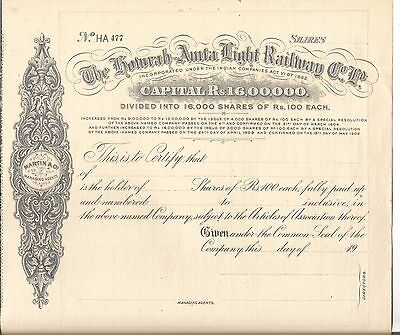 No. HA 477 SHARES
The Howrah-Amta Light Railway Co. Ld.
INCORPORATED UNDER THE INDIAN COMPANIES ACT VI OF 1882.
CAPITAL Rs 16,00,000.
DIVIDED INTO 16,000 SHARES OF Rs. 100 EACH.
INCREASED FROM Rs 9,00,000 TO Rs 13,00,000 BY THE ISSUE OF 4,000 SHARES OF Rs. 100 EACH, BY A SPECIAL RESOLUTION
OF THE ABOVE NAMED COMPANY PASSED ON THE AND CONFIRMED ON THE 21ST DAY OF MARCH
AND FURTHER INCREASED TO Rs. 16,00,000 BY THE ISSUE OF 3000 SHARES OF Rs 100 EACH BY A SPECIAL RESOLUTION
OF THE ABOVE NAMED COMPANY PASSED ON THE DAY OF APRIL AND CONFIRMED ON THE DAY OF MAY
This is to Certify that
of
is the holder of Shares of Rs100 each, fully paid up
and numbered to inclusive, in
the above named Company, subject to the Articles of Association thereof.
Given under the Common Seal of the
Company, this day of 19
MARTIN & Co.
MANAGING AGENTS
DIRECTORS.
MANAGING AGENTS.